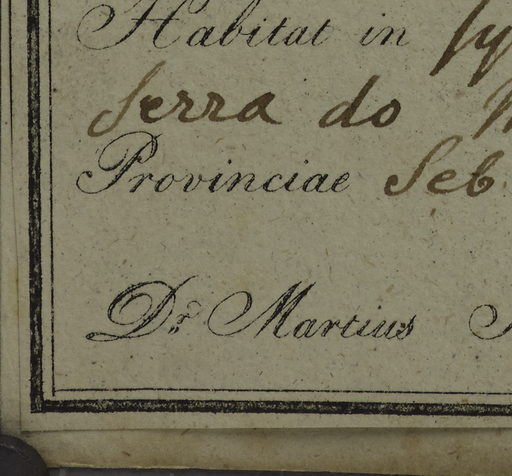 Habitat in
Serra do
Provinciae Seb
Dr. Martius